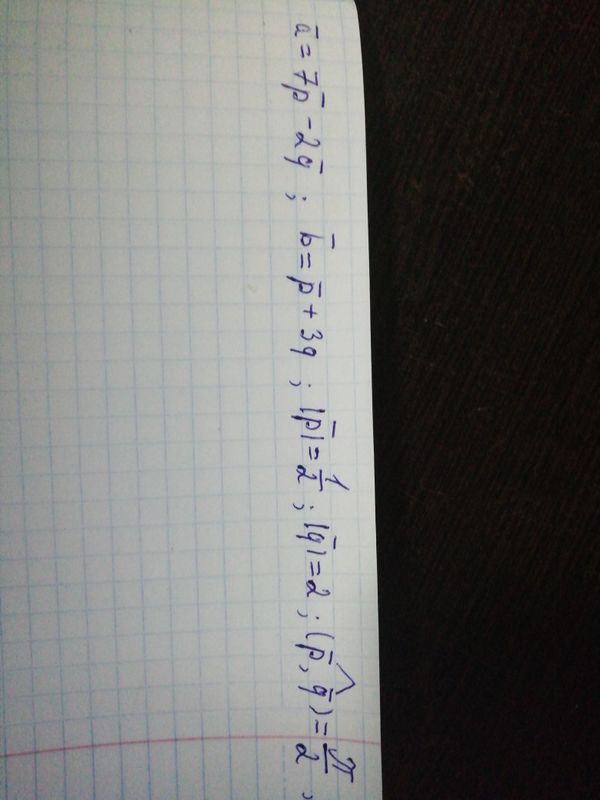 a̅ = 7p̅ - 2q̅ ; b̅ = p̅ + 3q ; |p̅| = 1/2 ; |q̅| = 2 ; (p̅, ^q̅) = π/2 ,